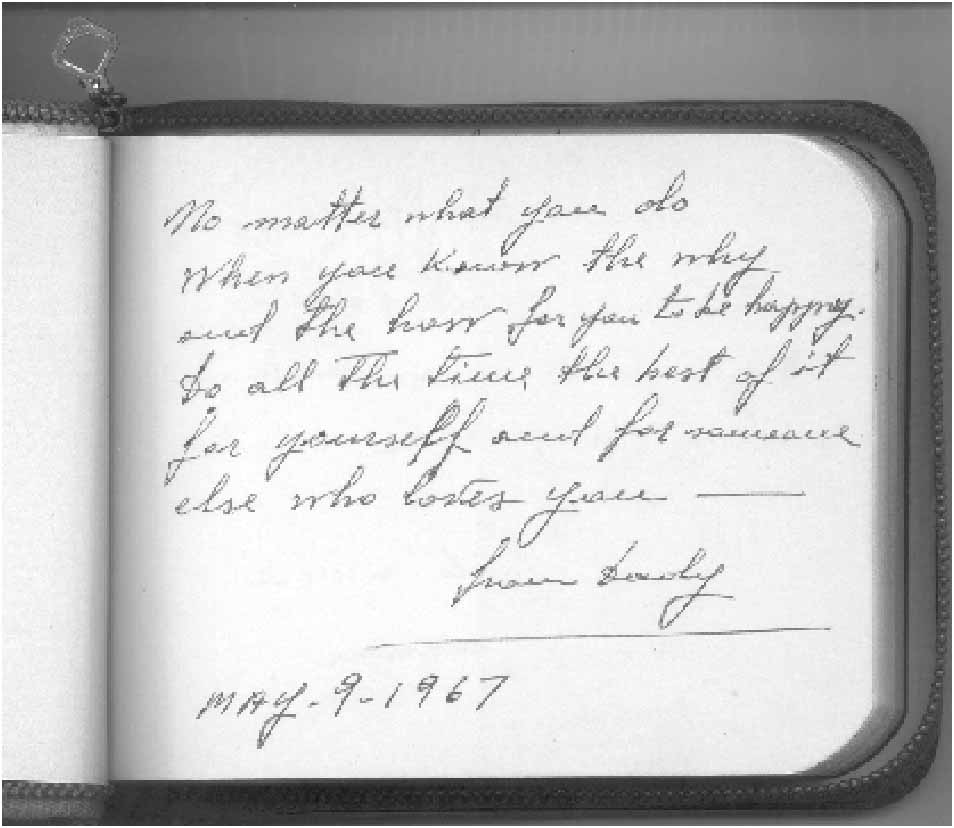 No matter what you do
When you know the why
and the how for you to be happy.
Do all The time the best of it
for yourself and for someone
else who loves you —
from Dady
MAY-9-1967